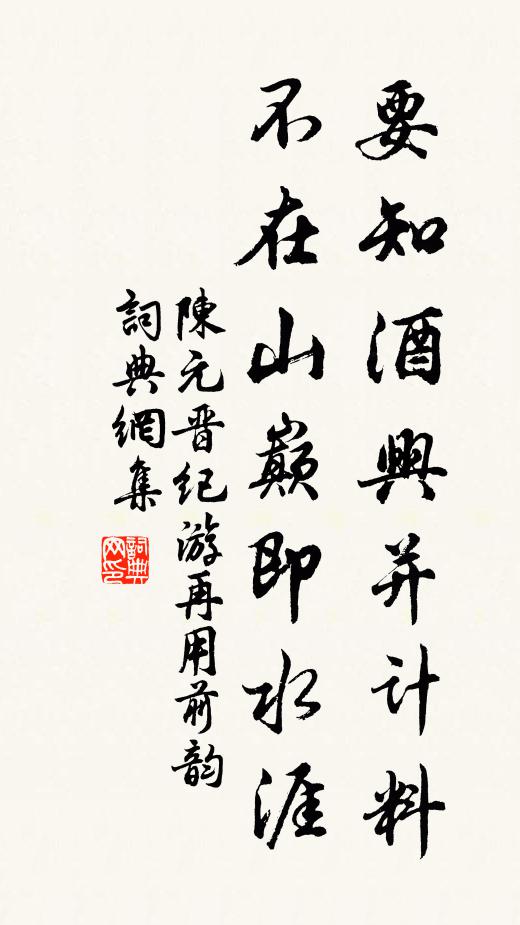 要知酒興并計料
不在山巔即水涯
陳元晉紀游再用前韵
詞典網集
詞典网印